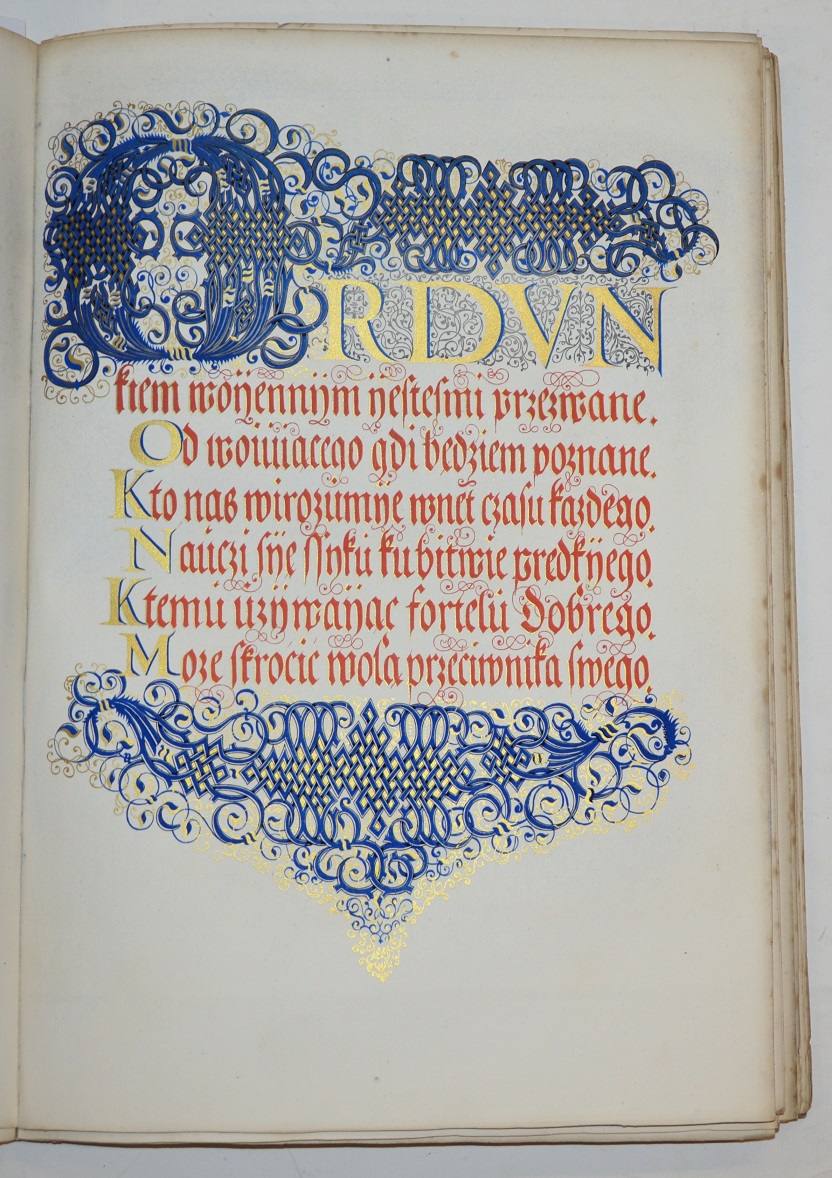 ORDVN
ktem woÿennÿm ÿestesmi przezwane.
Od woiuiacego gdi będziem poznane.
Kto nas wirozumÿe wnet czasu każdego.
Nauczi sÿe sÿku ku bitwie prędkÿego.
Ktemu uzÿwaÿąc fortelu dobrego.
Moze skrócić wolą przeciwnika swego.